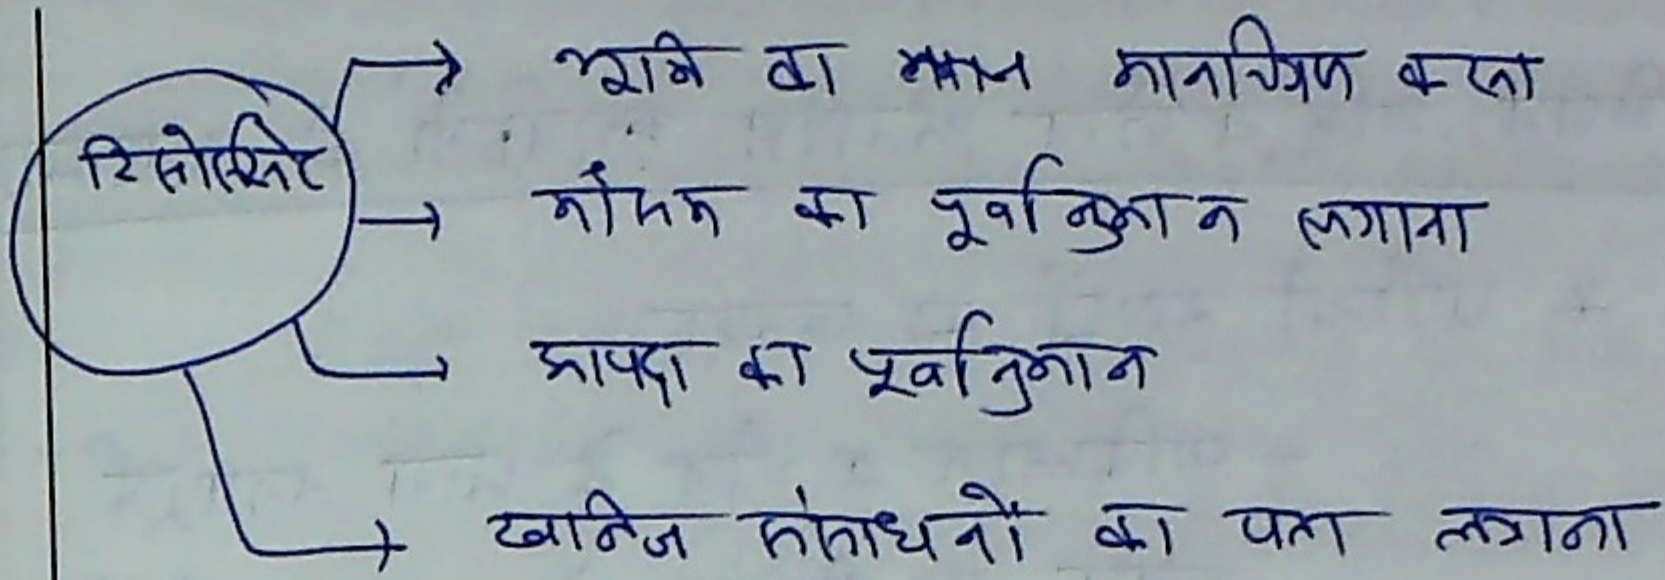 रिसोर्ससेट
भूमि का मानचित्रण करना
मौसम का पूर्वानुमान लगाना
आपदा का पूर्वानुमान
खनिज संसाधनों का पता लगाना